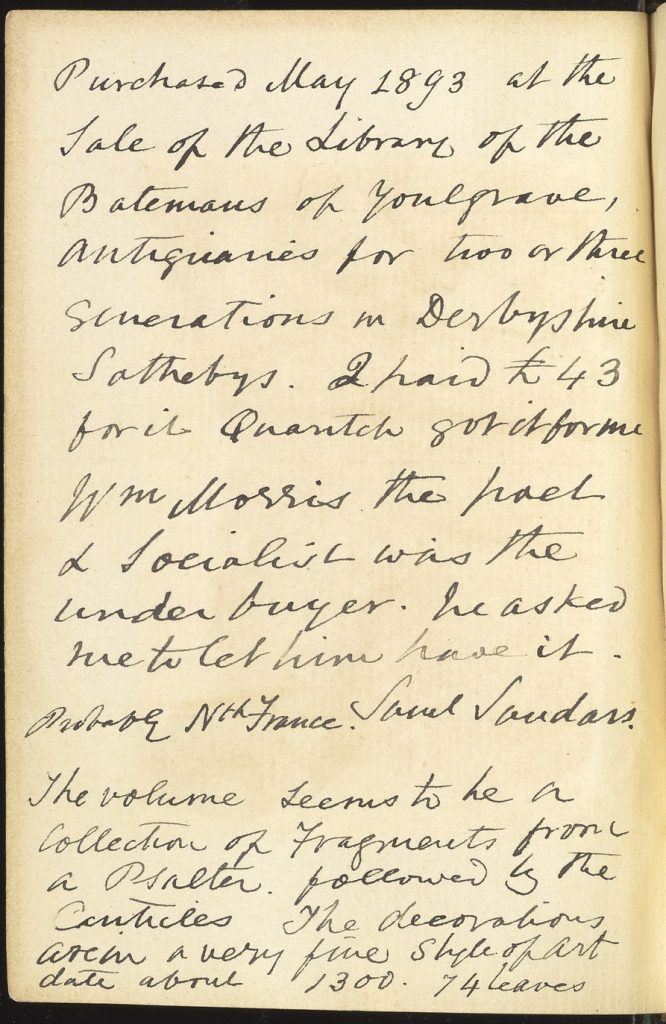 Purchased May 1893 at the
Sale of the Library of the
Batemans of Youlgrave,
Antiquaries for two or three
generations in Derbyshire
Sothebys. I paid £43
for it Quaritch got it for me
Wm Morris the poet
& Socialist was the
under buyer. he asked
me to let him have it.
Probably Nth France. Saml Sandars.
The volume seems to be a
Collection of Fragments from
a Psalter. followed by the
Canticles The decorations
are in a very fine Style of Art
date about 1300. 74 leaves